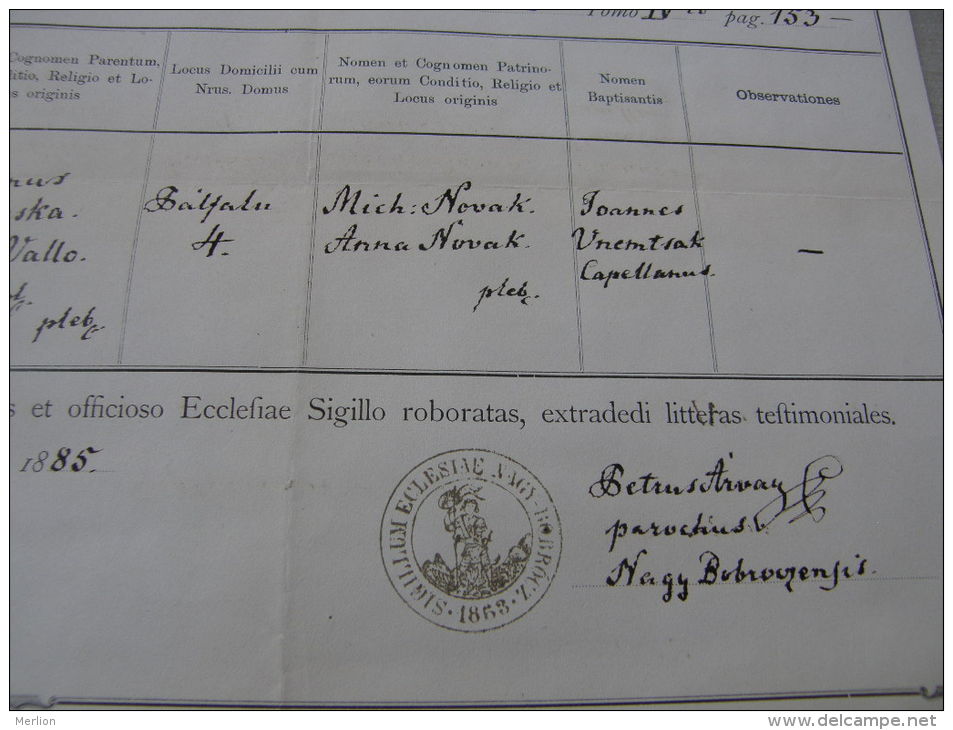 Tomo IV pag. 153 —
Cognomen Parentum,
ditio, Religio et Lo-
s originis
Locus Domicilii cum
Nrus. Domus
Nomen et Cognomen Patrino-
rum, eorum Conditio, Religio et
Locus originis
Nomen
Baptisantis
Observationes
rus
ska.
Vallo.
pleb.
Pálfalu
4.
Mich: Novak.
Anna Novak.
pleb.
Joannes
Vnemtsak
Capellanus.
—
s et officioso Ecclesiae Sigillo roboratas, extradedi litteras testimoniales.
1885.
SIGILLUM ECLESIAE NAGY-BOBRÓCZ. 1863
Petrus Árvay
parochus
Nagy Bobroczensis.
Merlion
www.delcampe.net